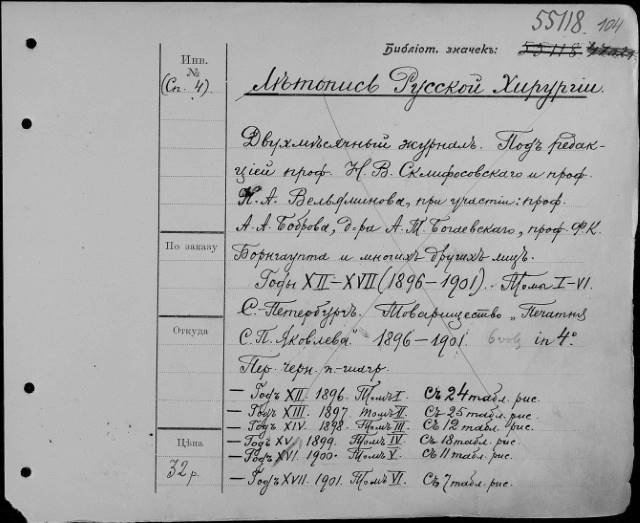 55118. 104
Библіот. значекъ: 55118
Инв.
№
(Сп. 4).
Лѣтопись Русской Хирургіи.
Двухмѣсячный журналъ. Подъ редак-
ціей проф. Н. В. Склифосовскаго и проф.
Н. А. Вельяминова, при участіи: проф.
А. А. Боброва, д-ра А. М. Богаевскаго, проф. Ф. К.
По заказу
Борнгаупта и многихъ другихъ лицъ.
Годы XII–XVII (1896–1901). Томы I–VI.
С.-Петербургъ. Товарищество „Печатня
Откуда
С. П. Яковлева" 1896–1901. 6 vols in 4°.
Пер. черн. п-шагр.
— Годъ XII. 1896. Томъ I. Съ 24 табл. рис.
— Годъ XIII. 1897. Томъ II. Съ 25 табл. рис.
— Годъ XIV. 1898. Томъ III. Съ 12 табл. рис.
Цѣна
— Годъ XV. 1899. Томъ IV. Съ 18 табл. рис.
— Годъ XVI. 1900. Томъ V. Съ 11 табл. рис.
32 р.
— Годъ XVII. 1901. Томъ VI. Съ 7 табл. рис.